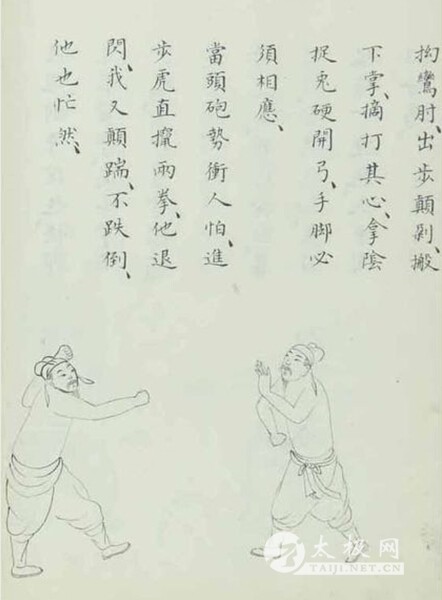 拗鸞肘、出步顛剁、搬
下掌、摘打其心、拿陰
捉兎硬開弓、手脚必
須相應、
當頭砲勢衝人怕、進
步虎直攛兩拳、他退
閃、我又顛踹、不跌倒、
他也忙然、
太极网
TAIJI.NET.CN